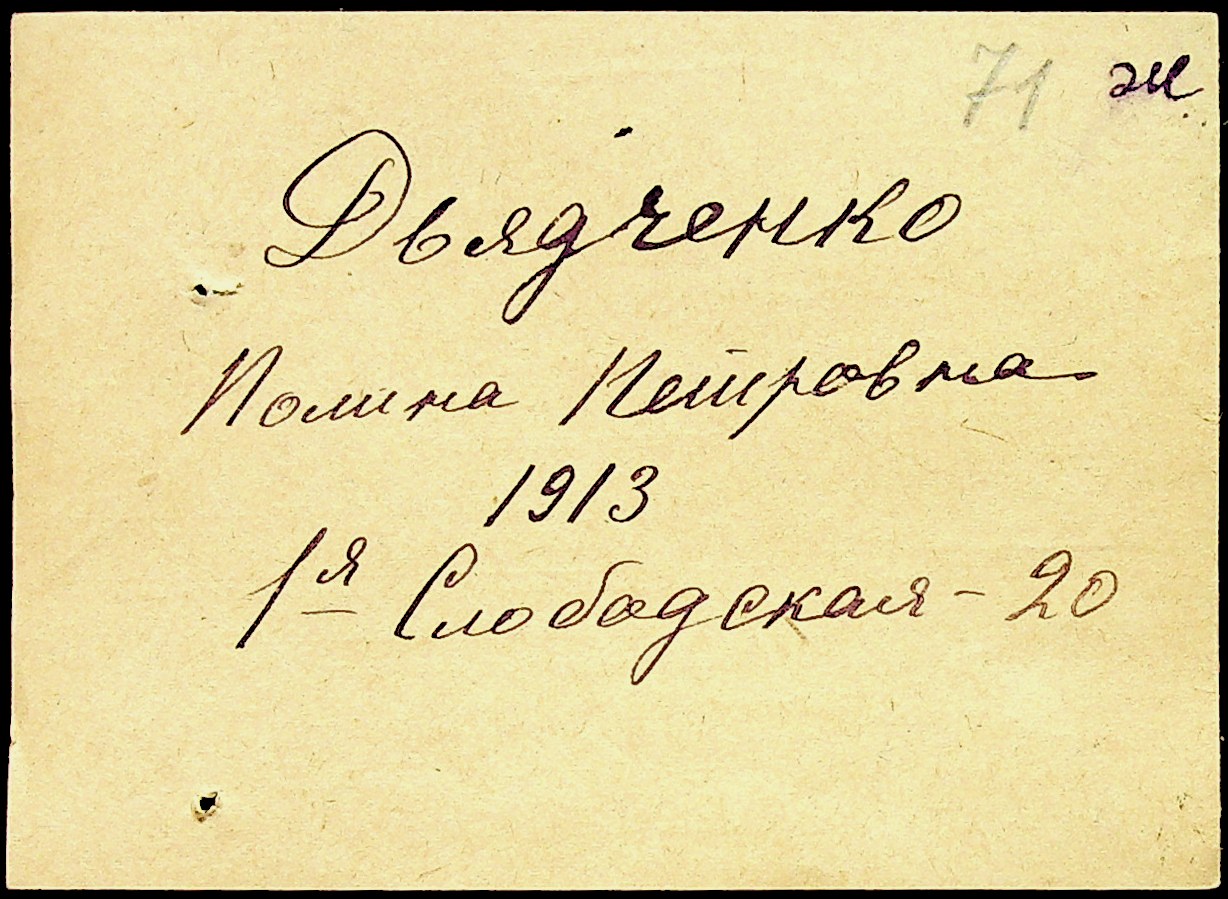 71 ж
Дьядченко
Полина Петровна
1913
1я Слободская - 20